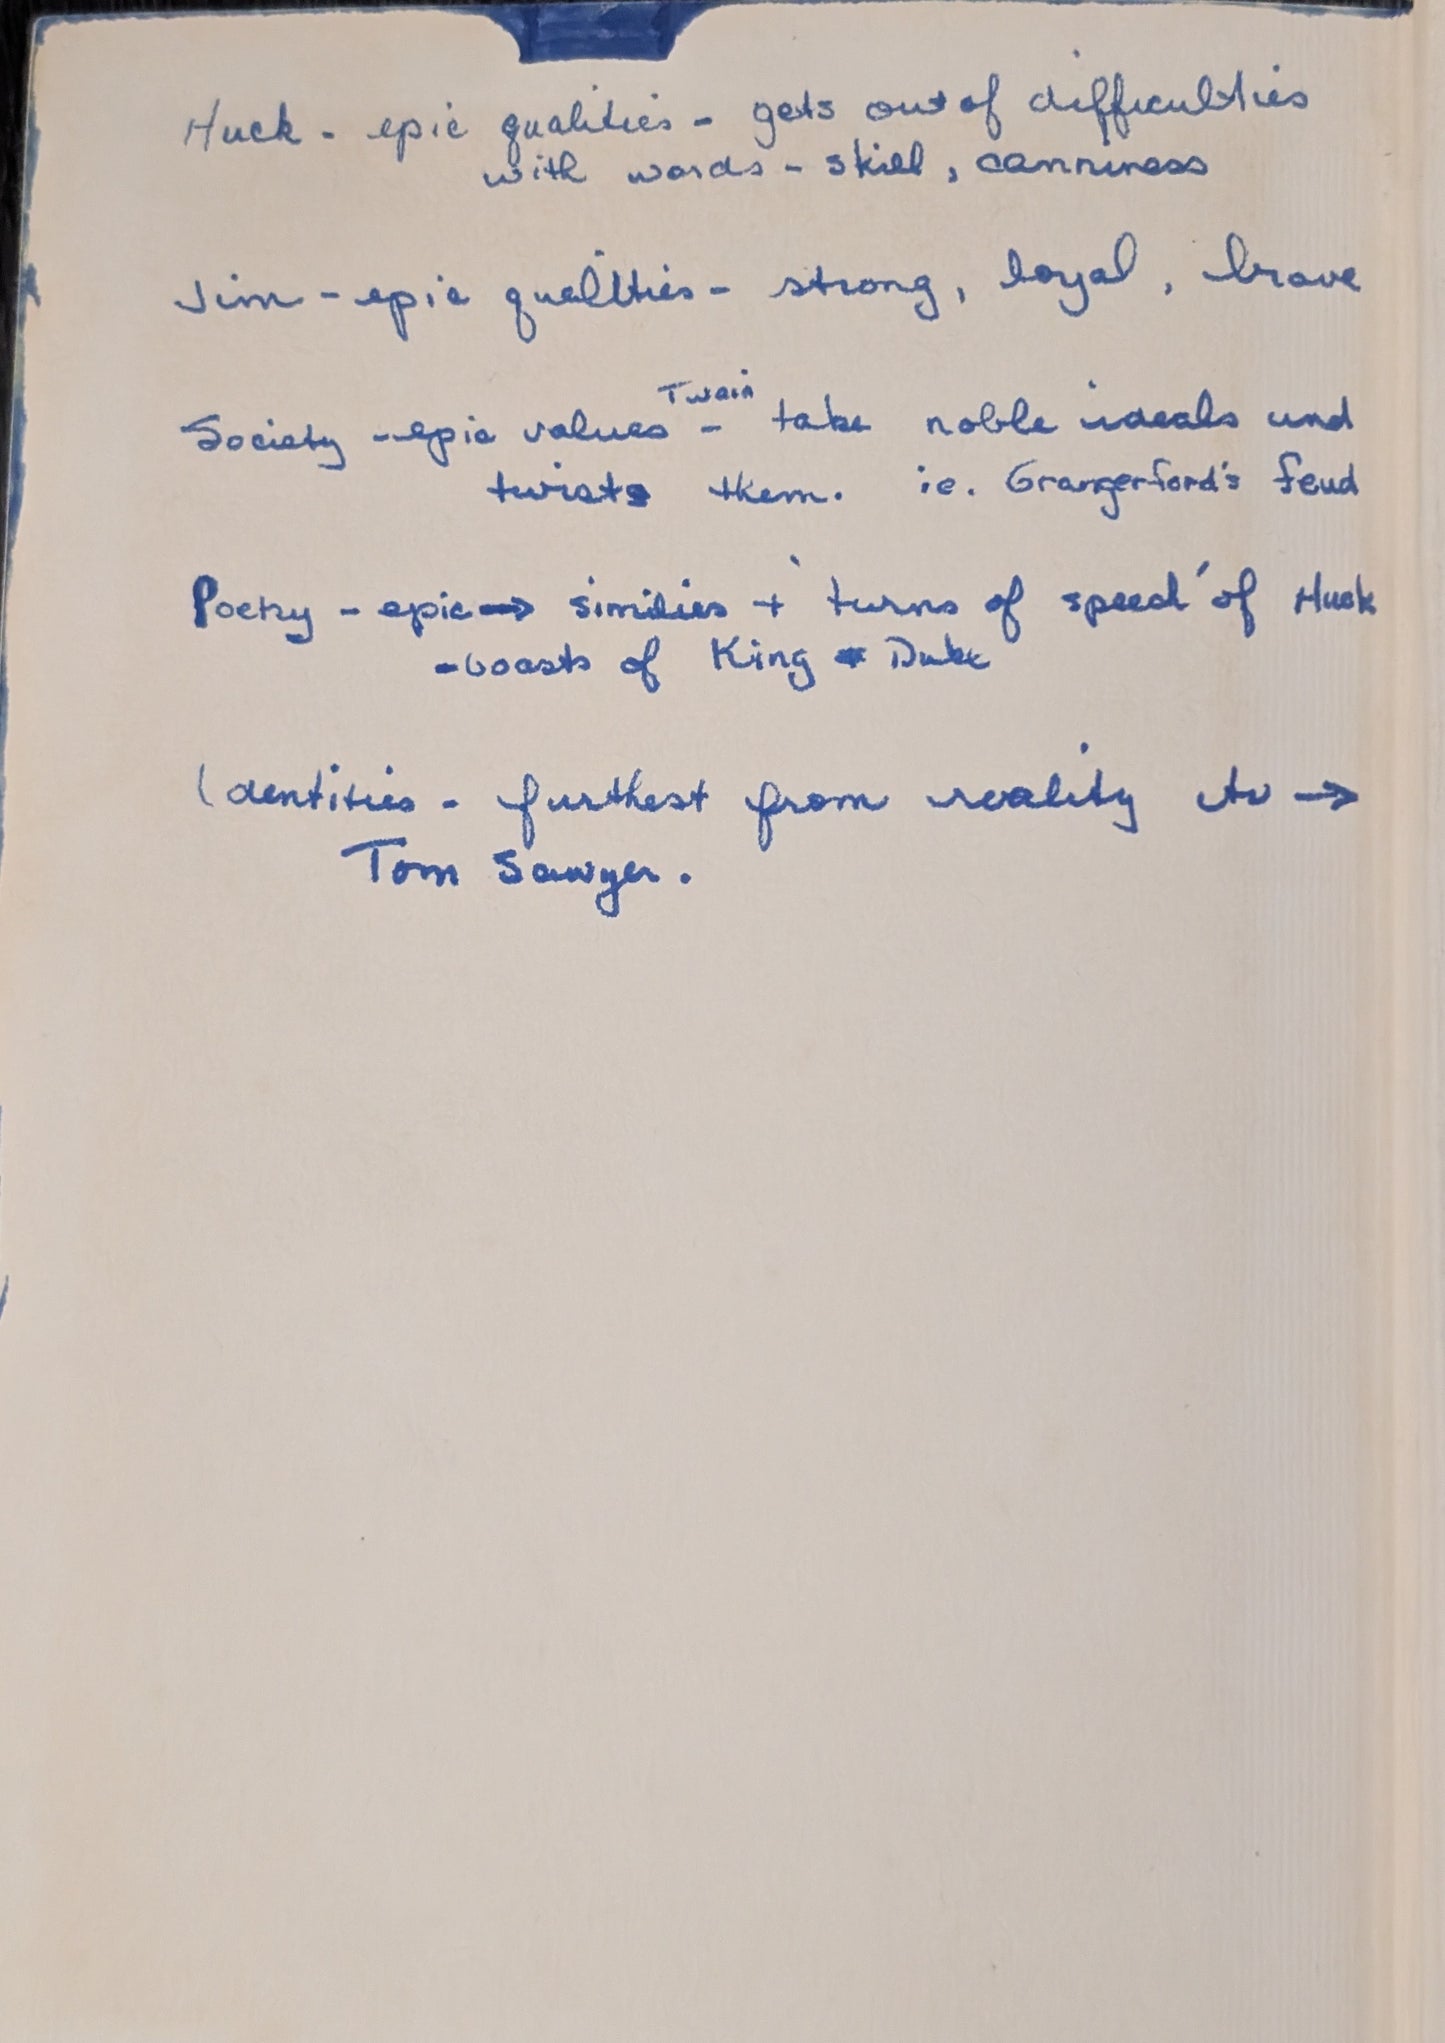 Huck - epic qualities - gets out of difficulties
with words - skill, canniness
Jim - epic qualities - strong, loyal, brave
Twain
Society - epic values - take noble ideals and
twists them. ie. Grangerford's feud
Poetry - epic → similies + 'turns of speech' of Huck
- boasts of King + Duke
Identities - furthest from reality →
Tom Sawyer.